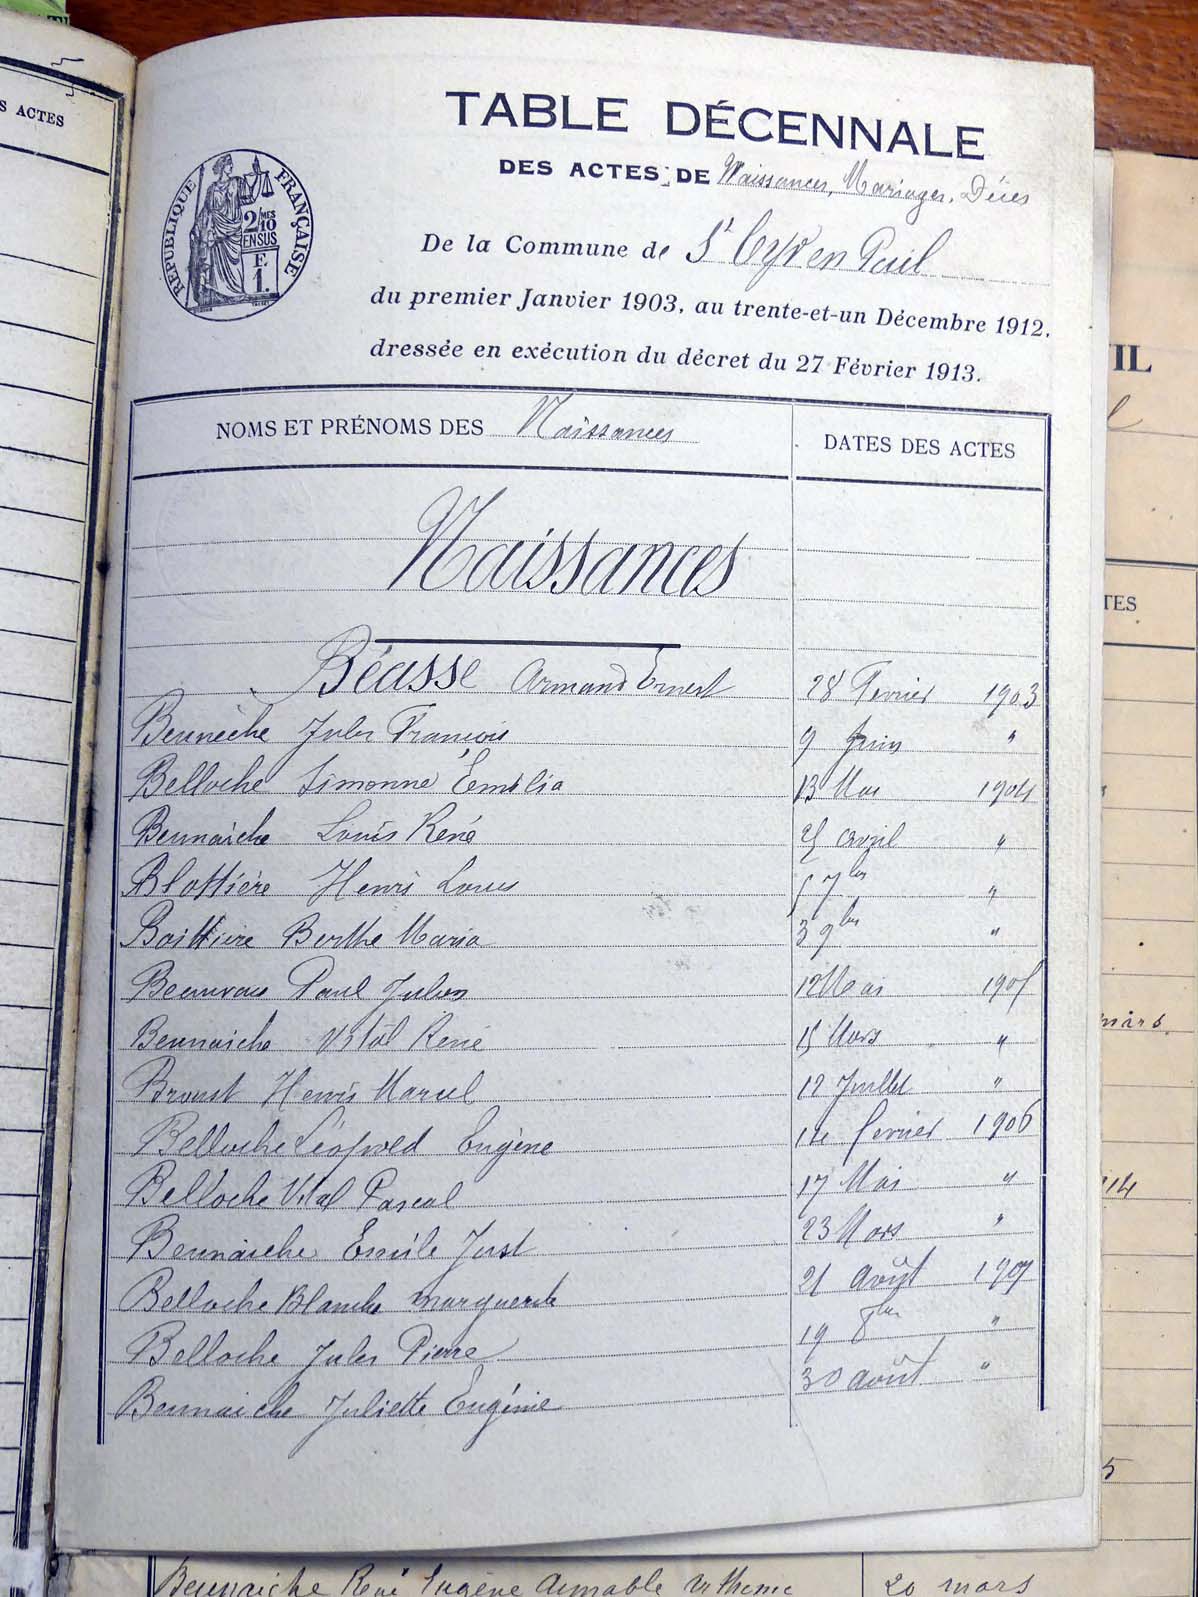 S ACTES
TABLE DÉCENNALE
DES ACTES DE Naissances, Mariages, Décès
RÉPUBLIQUE FRANÇAISE
2/MES
10
EN SUS
E.
1.
De la Commune de St Cyr en Pail
du premier Janvier 1903, au trente-et-un Décembre 1912,
dressée en exécution du décret du 27 Février 1913.
NOMS ET PRÉNOMS DES Naissances DATES DES ACTES
Naissances
Béasse Armand Ernest 28 Fevrier 1903
Beunèche Jules François 9 Juin "
Belloche Simonne Emilia 13 Mai 1904
Beunaiche Louis René 25 avril "
Blottière Henri Louis 5 7bre "
Boittiere Berthe Maria 3 9bre "
Beauvais Paul Julien 12 Mai 1905
Beunaiche Vital René 15 Mars "
Broust Henri Marcel 12 Juillet "
Belloche Léopold Eugène 14 fevrier 1906
Belloche Vital Pascal 17 Mai "
Beunaiche Emile Just 23 Mars "
Belloche Blanche Marguerite 21 août 1907
Belloche Jules Pierre 19 8bre "
Beunaiche Juliette Eugénie 30 août "
IL
TES
mars
14
5
Beunaiche René Eugène Aimable 20 mars